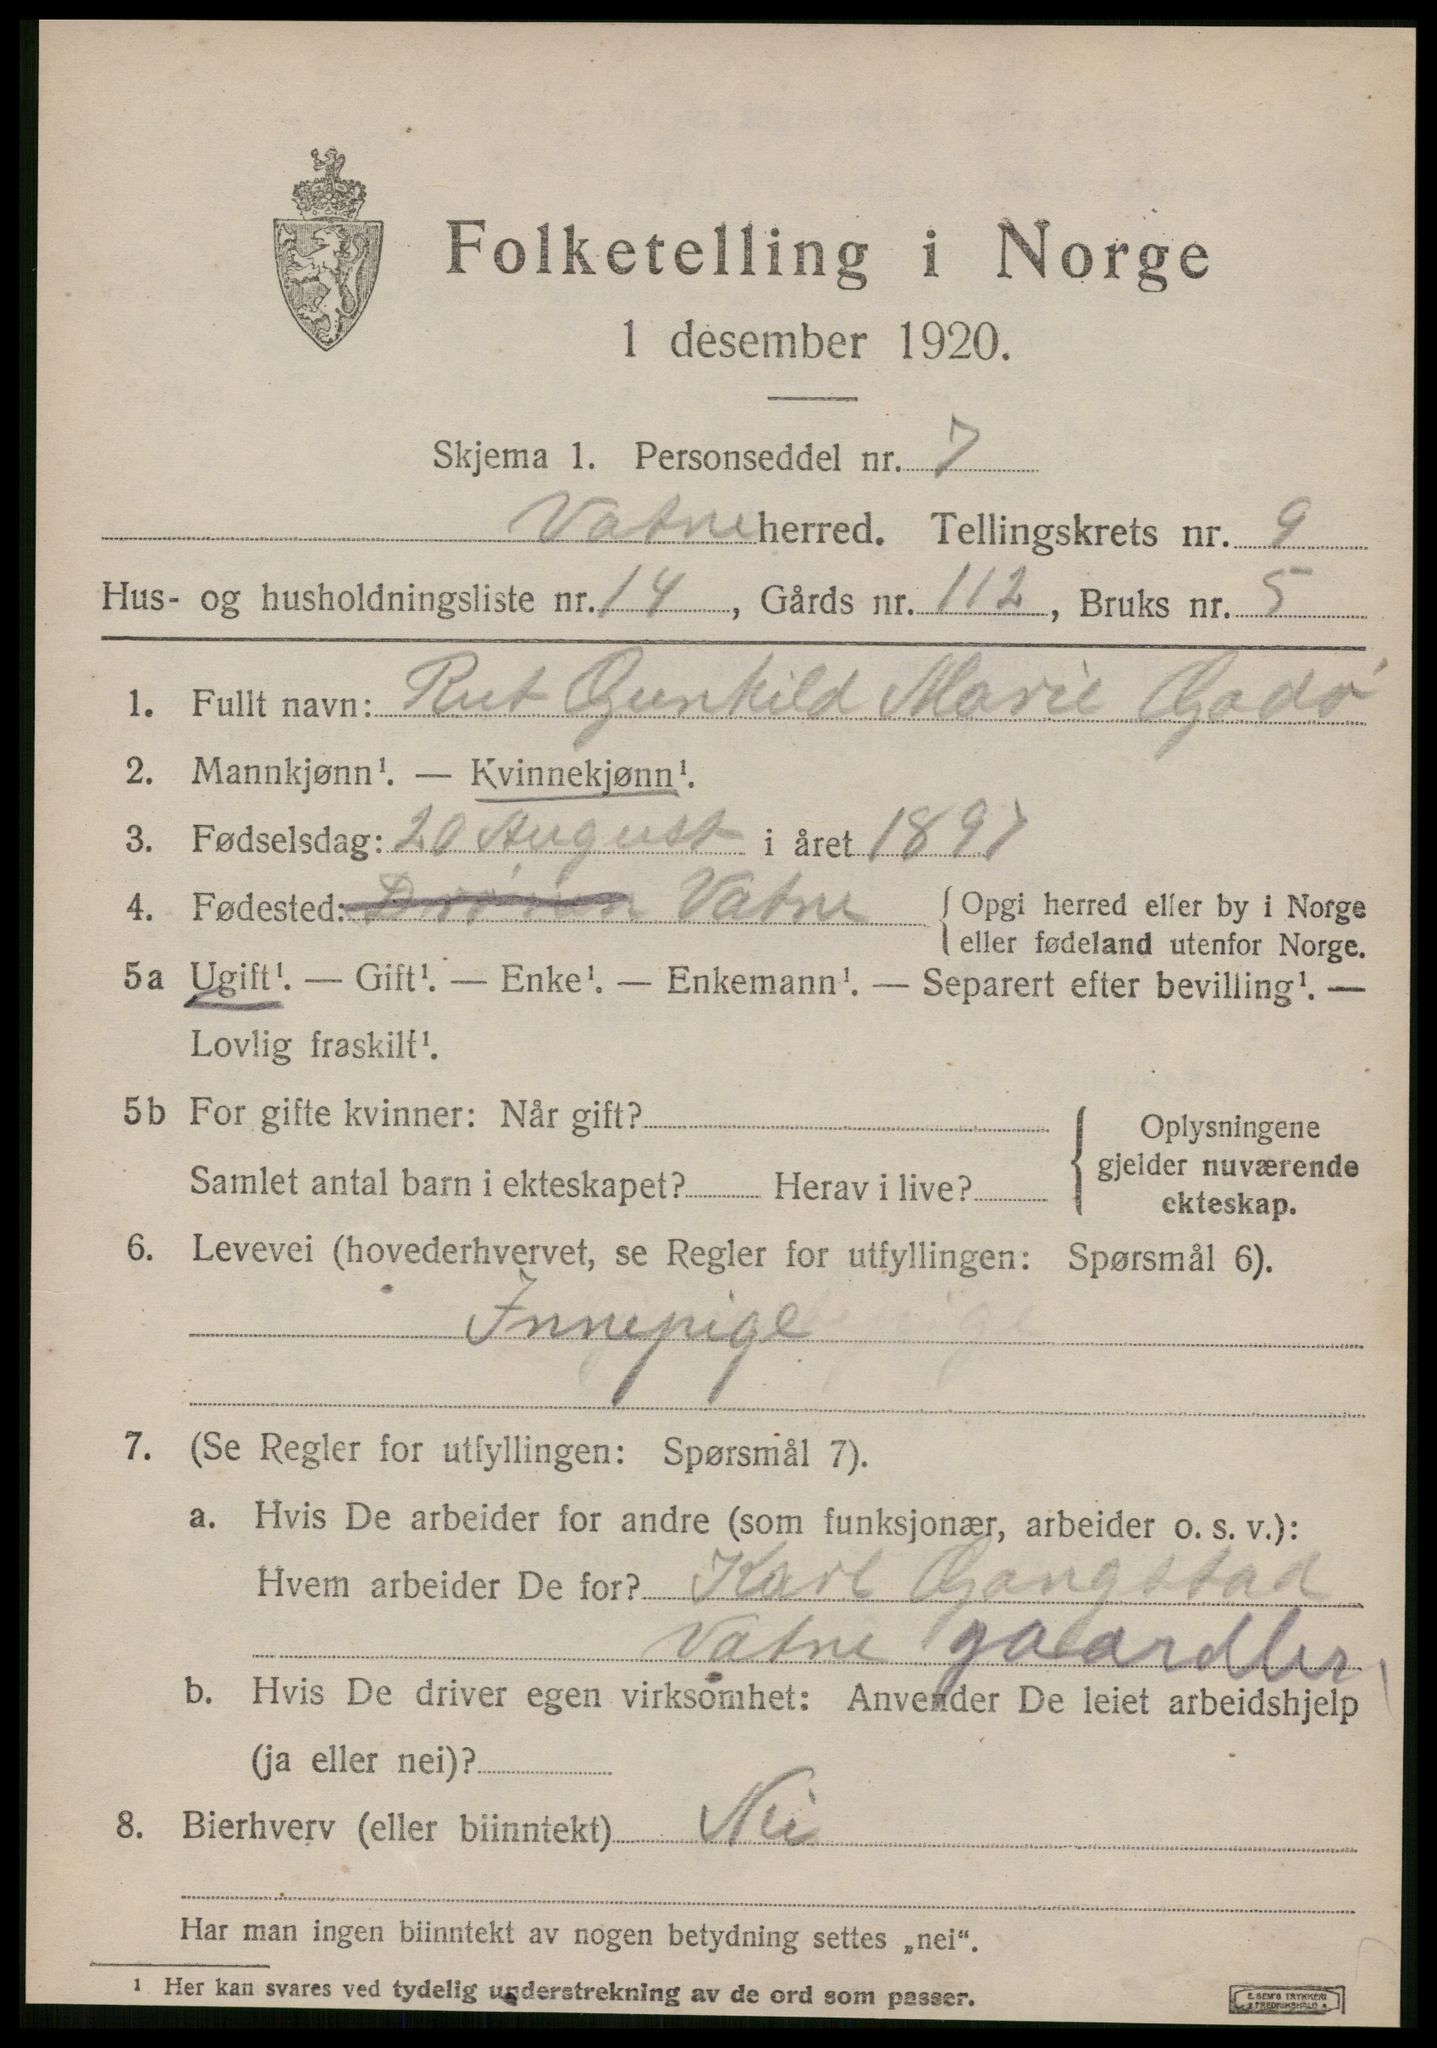 Folketelling i Norge
1 desember 1920.
Skjema 1. Personseddel nr. 7
Vatne herred. Tellingskrets nr. 9
Hus- og husholdningsliste nr. 14, Gårds nr. 112, Bruks nr. 5
1. Fullt navn: Rut Gunhild Marie Gadø
2. Mannkjønn¹. — Kvinnekjønn¹.
3. Fødselsdag: 20 August i året 1897
4. Fødested: Vatne { Opgi herred eller by i Norge
eller fødeland utenfor Norge.
5a Ugift¹. — Gift¹. — Enke¹. — Enkemann¹. — Separert efter bevilling¹. —
Lovlig fraskilt¹.
5b For gifte kvinner: Når gift?
Samlet antal barn i ekteskapet? Herav i live?
Oplysningene
gjelder nuværende
ekteskap.
6. Levevei (hovederhvervet, se Regler for utfyllingen: Spørsmål 6).
Innepige
7. (Se Regler for utfyllingen: Spørsmål 7).
a. Hvis De arbeider for andre (som funksjonær, arbeider o. s. v.):
Hvem arbeider De for? Karl Gangstad
Vatne gaardbr
b. Hvis De driver egen virksomhet: Anvender De leiet arbeidshjelp
(ja eller nei)?
8. Bierhverv (eller biinntekt) Nei
Har man ingen biinntekt av nogen betydning settes „nei“.
1 Her kan svares ved tydelig understrekning av de ord som passer.
E. SEM'S TRYKKERI
FREDRIKSHALD